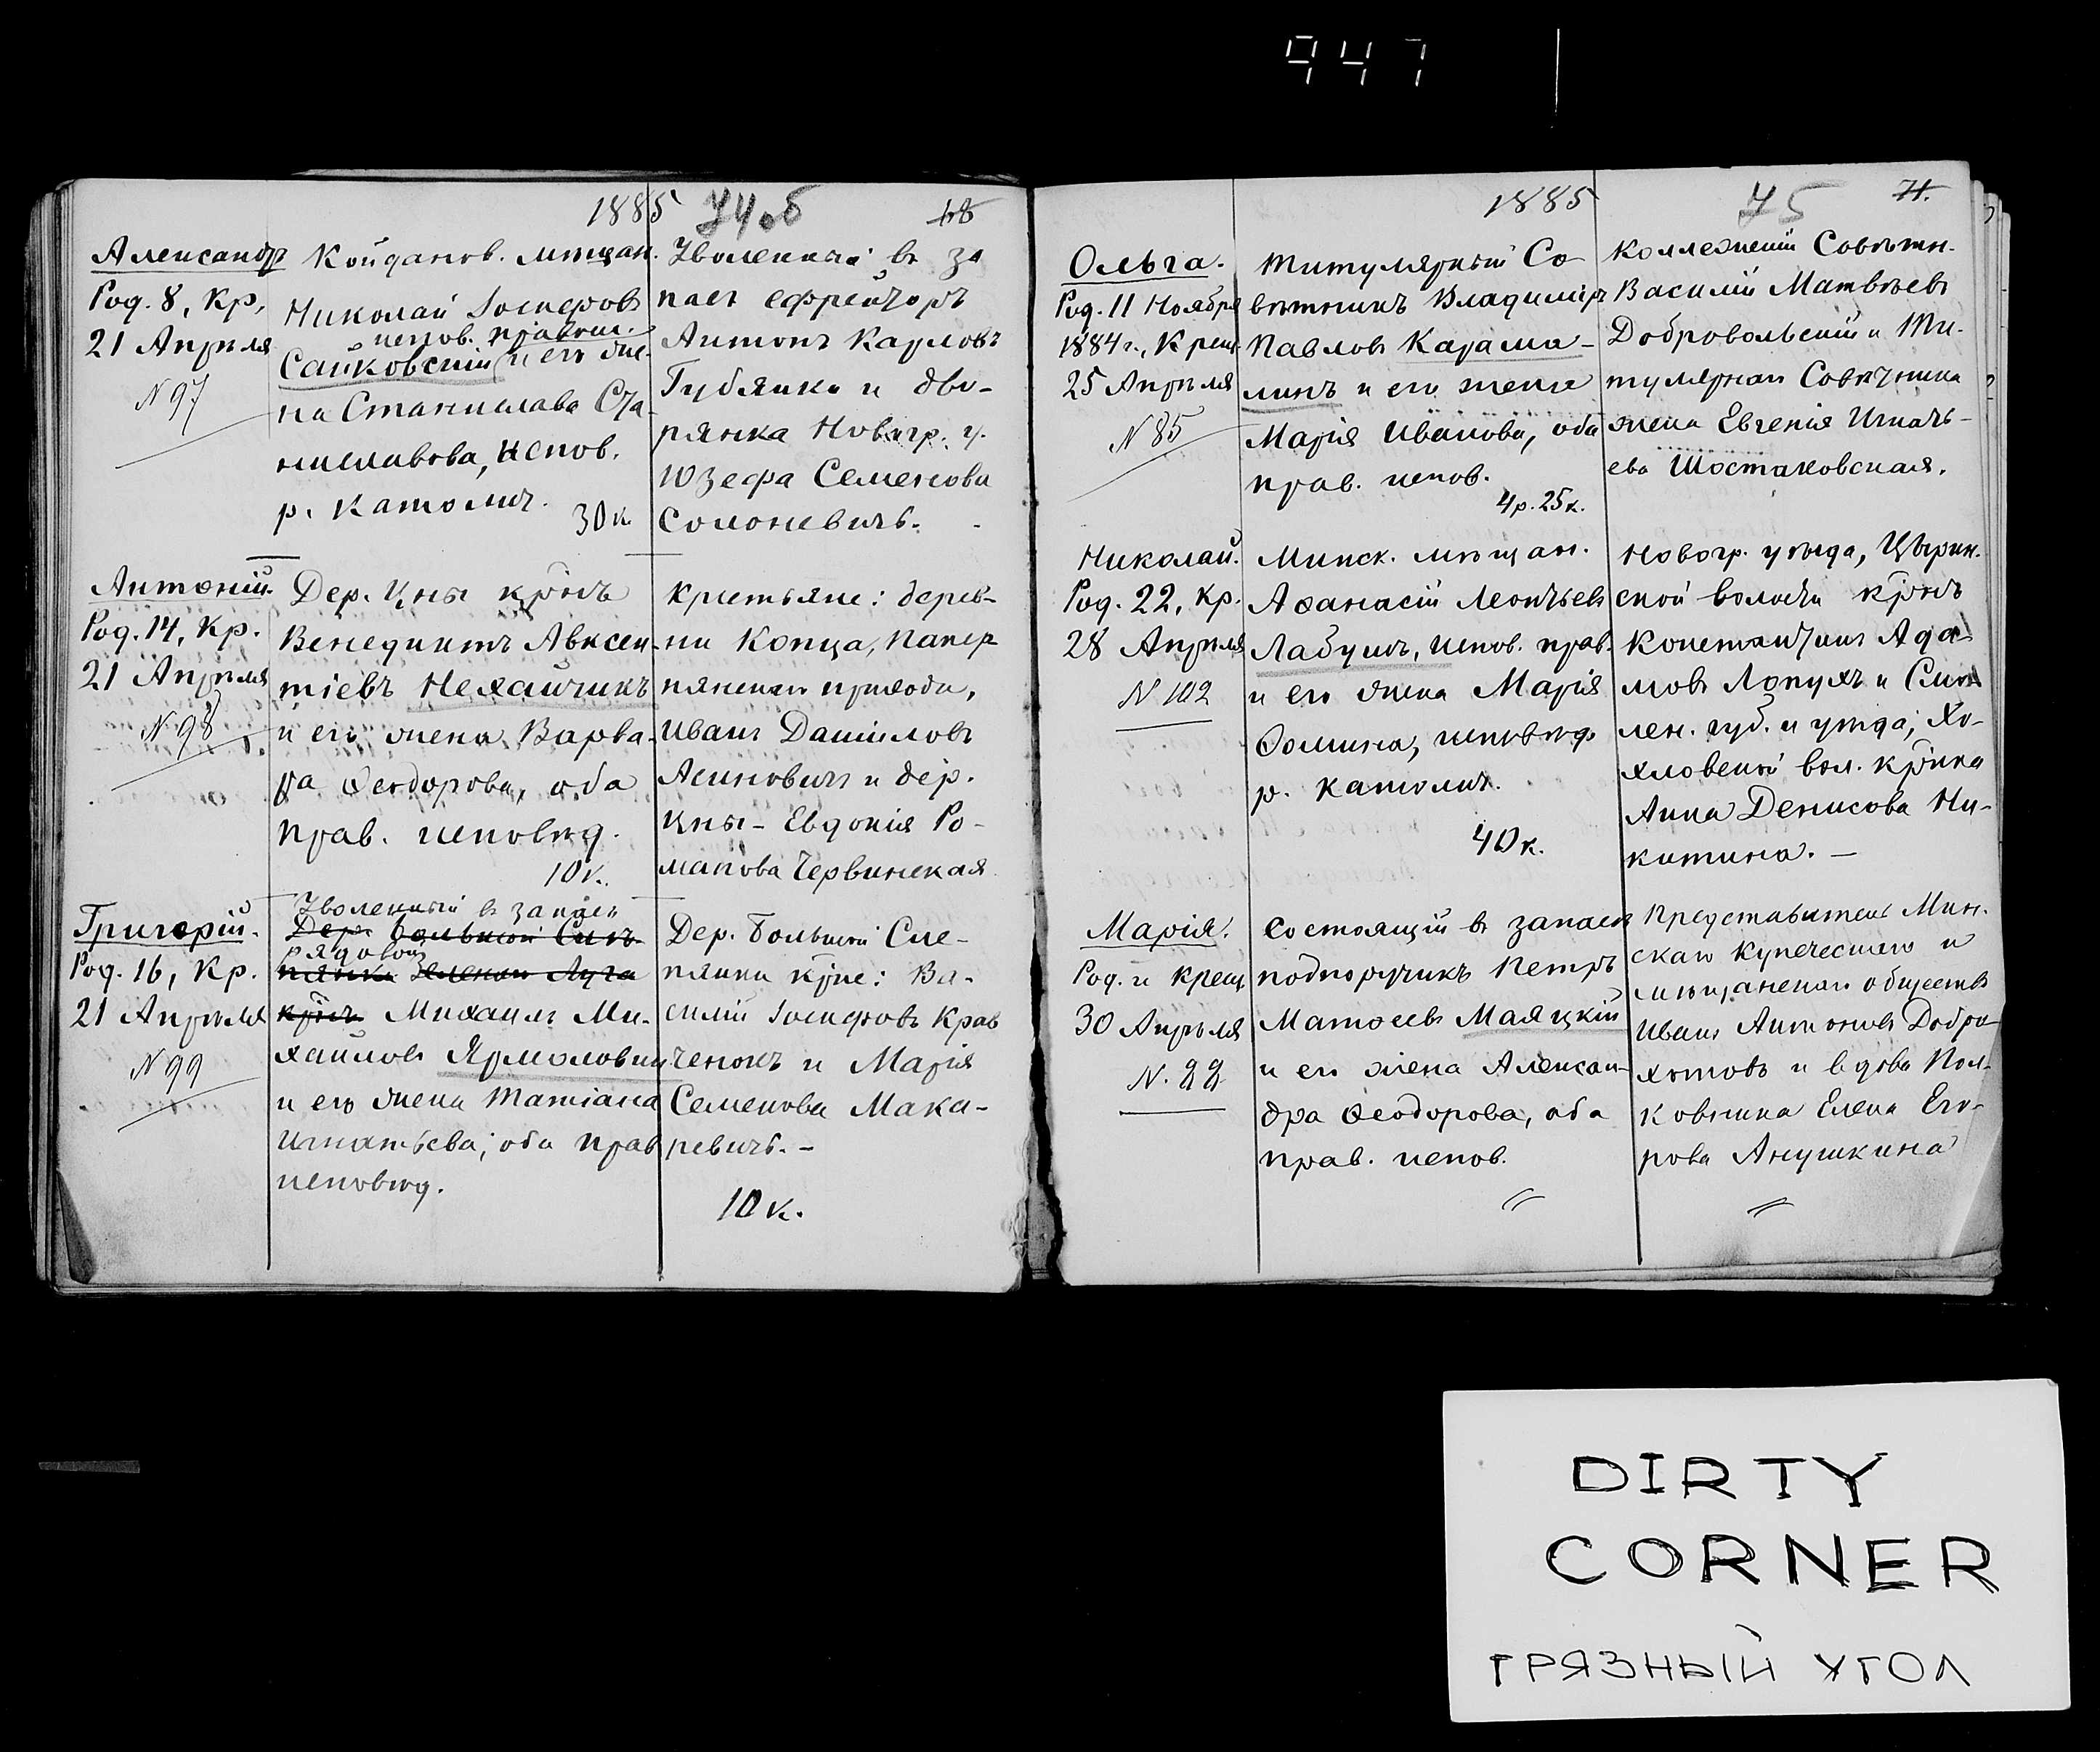 947
1885 74об 68
Александръ
Род. 8, Кр,
21 Апрѣля
N 97
Койданов. мѣщан.
Николай Іосифовъ
испов. правосл.
Сайковскій и его же-
на Станислава Ста-
ниславова, испов.
р. католич.
30 к.
Уволенный въ за
пасъ ефрейторъ
Антонъ Карловъ
Губянко и дво-
рянка Новогр. у.
Юзефа Семенова
Солоневичъ.
Антоній.
Род. 14, Кр.
21 Апрѣля
N 98
Дер. Цны кр̃нъ
Венедиктъ Авксен-
тіевъ Нехайчикъ
и его жена Варва-
ра Ѳеодорова, оба
прав. исповѣд.
10 к.
Крестьяне: дерев-
ни Копца, Папер
нянскаго прихода,
Иванъ Даніиловъ
Асиновичъ и дер.
Цны - Евдокія Ро-
манова Червинская
Григорій.
Род. 16, Кр.
21 Апрѣля
N 99
Уволенный в запасъ
Дер. Большой Слѣ-
рядовой
пянки Зеленаго Луга
кр̃нъ Михаилъ Ми-
хайловъ Ярмоловичъ
и его жена Татіана
Игнатьева, оба прав
исповѣд.
Дер. Большой Сле-
пянки кр̃не: Ва-
силій Іосифовъ Крав
ченокъ и Марія
Семенова Мака-
ревичъ. -
10 к.
1885 75 71.
Ольга.
Род. 11 Ноября
1884 г., Крещ.
25 Апрѣля
N 85
Титулярный Со-
вѣтникъ Владиміръ
Павловъ Карама-
линъ и его жена
Марія Иванова, оба
прав. испов.
4 р. 25 к.
Коллежскій Совѣтн.
Василій Матвѣевъ
Добровольскій и Ти-
тулярнаго Совѣтника
жена Евгенія Игнать-
ева Шостаковская.
Николай.
Род. 22, Кр.
28 Апрѣля
N 102
Минск. мѣщан.
Аѳанасій Леонтьевъ
Лабунъ, испов. прав.
и его жена Марія
Ѳомина, исповѣд.
р. католич.
40 к.
Новогр. уѣзда, Цырин.
ской волости кр̃нъ
Константинъ Ада-
мовъ Лопухъ и Смо
лен. губ. и уѣзда, Хо-
хловской вол. кр̃нка
Анна Денисова Ни-
китина. -
Марія.
Род. и крещ.
30 Апрѣля
N. 22
Состоящій въ запасѣ
подпоручикъ Петръ
Матѳеевъ Маяцкій
и его жена Алексан-
дра Ѳеодорова, оба
прав. испов.
Представитель Мин.
скаго купеческаго и
мѣщанскаго обществъ
Иванъ Антоновъ Добро-
хотовъ и вдова Пол-
ковника Елена Его-
рова Анушкина
DIRTY
CORNER
ГРЯЗНЫЙ УГОЛ